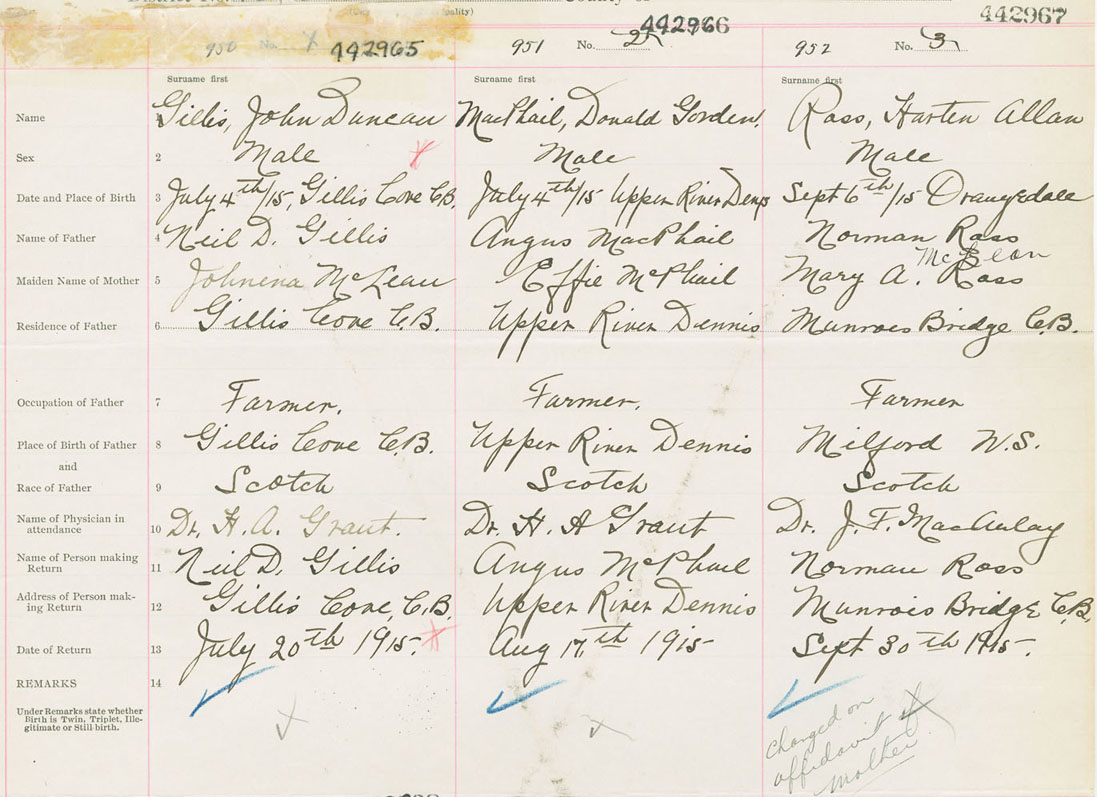 442967
442966
950 No. 1 442965 951 No. 2 952 No. 3
Surname first Surname first Surname first
Name 1 Gillis, John Duncan MacPhail, Donald Gorden. Ross, Harten Allan
Sex 2 Male Male Male
Date and Place of Birth 3 July 4th/15, Gillis Cove C.B. July 4th/15 Upper River Denys Sept 6th/15 Orangedale
Name of Father 4 Neil D. Gillis Angus MacPhail Norman Ross
McLean
Maiden Name of Mother 5 Johnena McLean Effie McPhail Mary A. Ross
Residence of Father 6 Gillis Cove C.B. Upper River Dennis Munroes Bridge C.B.
Occupation of Father 7 Farmer. Farmer. Farmer
Place of Birth of Father 8 Gillis Cove C.B. Upper River Dennis Milford N.S.
and
Race of Father 9 Scotch Scotch Scotch
Name of Physician in
attendance 10 Dr. H. A. Grant. Dr. H. A Grant Dr. J. F. MacAulay
Name of Person making
Return 11 Neil D. Gillis Angus McPhail Norman Ross
Address of Person mak-
ing Return 12 Gillis Cove, C.B. Upper River Dennis Munrois Bridge C.B.
Date of Return 13 July 20th 1915. Aug 17th 1915 Sept 30th 1915.
REMARKS 14
Under Remarks state whether
Birth is Twin, Triplet, Ille-
gitimate or Still-birth.
changed on
affidavit of
mother